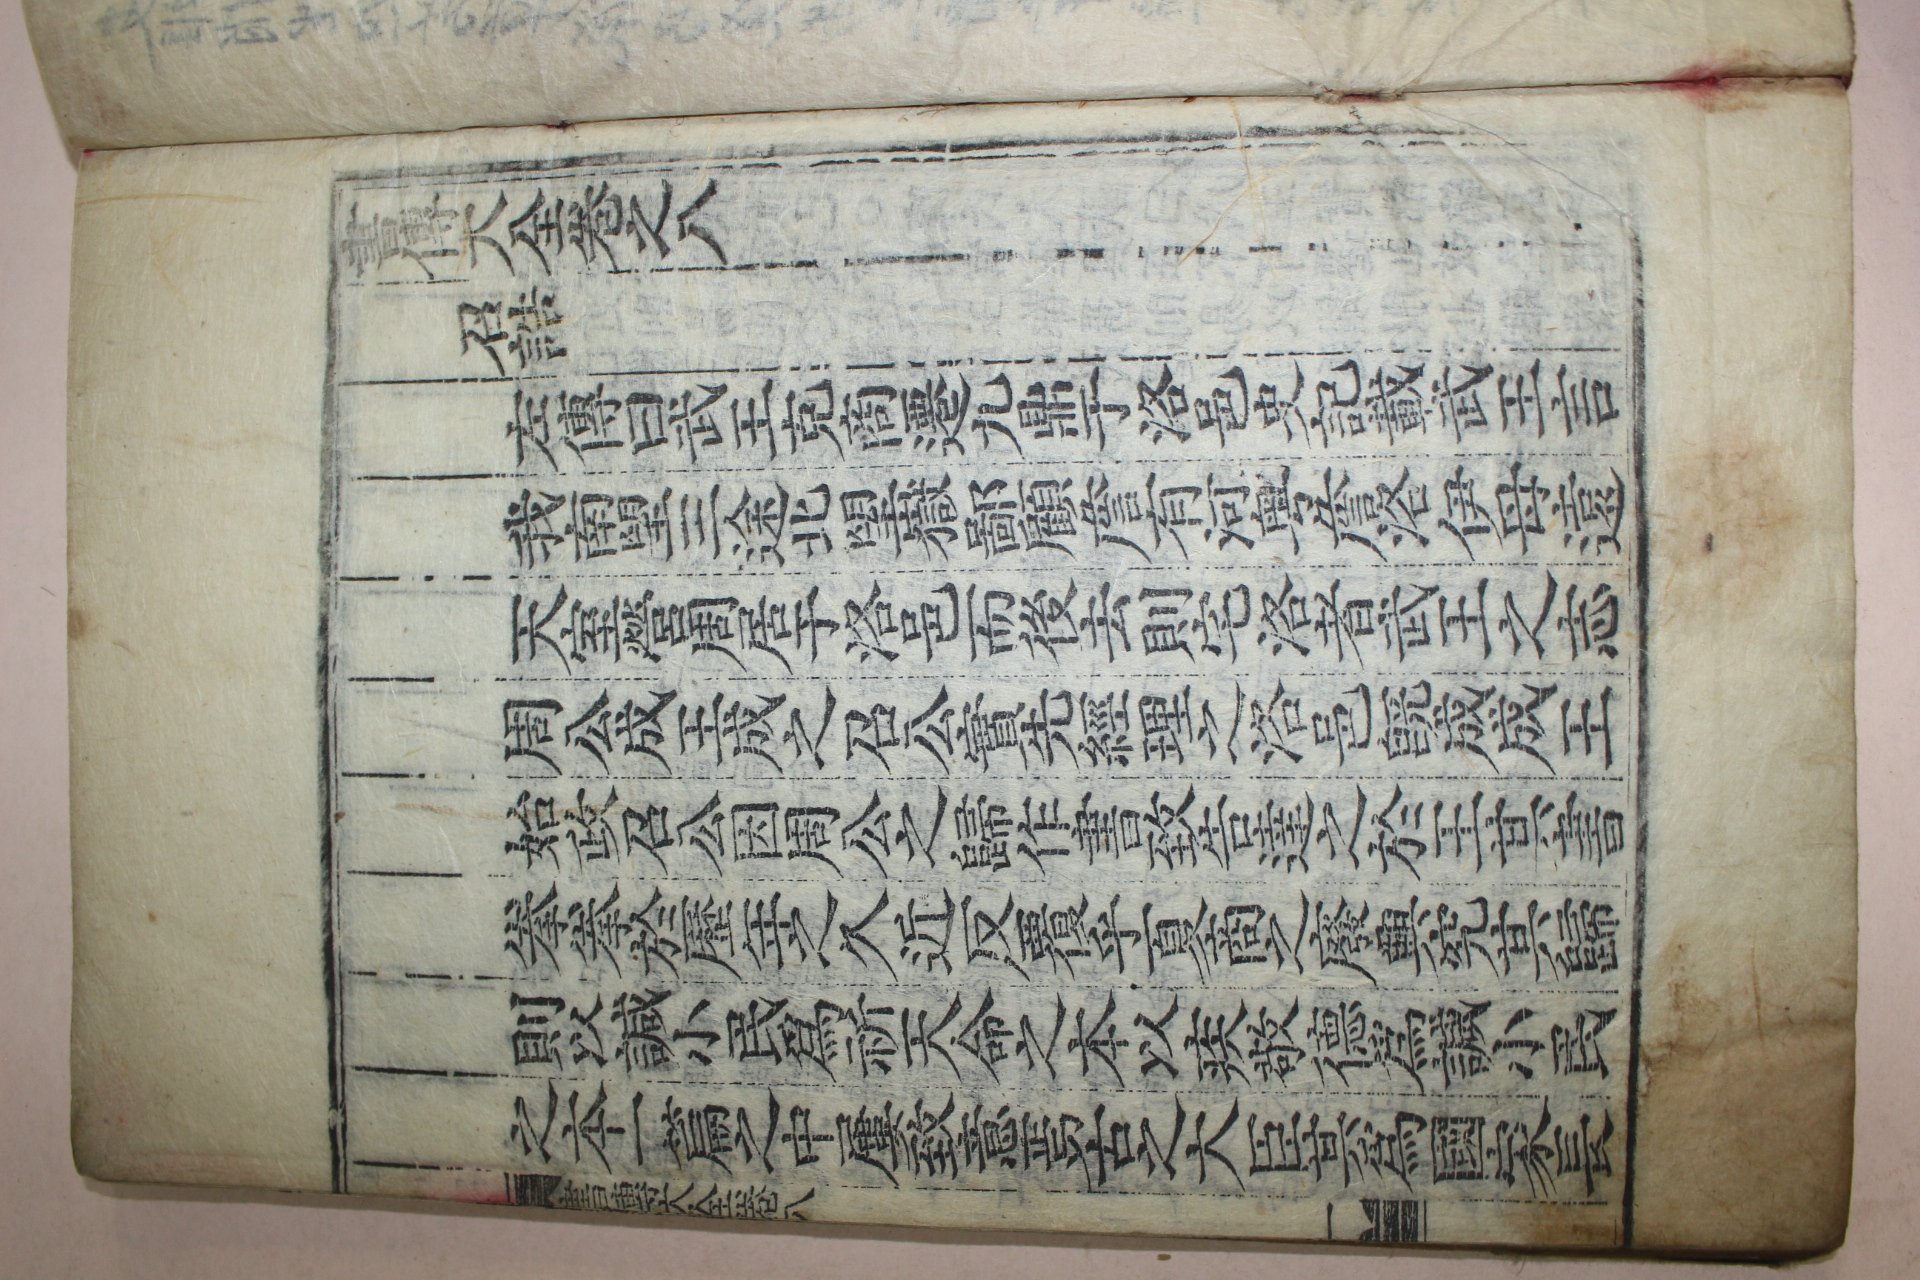 書傳大全卷之八
召誥
左傳曰武王克商遷九鼎于洛邑史記載武王言
我南望三途北望嶽鄙顧瞻有河粤瞻洛伊毋遠
天室營周居于洛邑而後去則宅洛者武王之志
周公成王成之召公實先經理之洛邑旣成成王
始政召公因周公之歸作書致告達之於王其書
拳拳於歷年之久近反覆乎夏商之廢興究其歸
則以諴小民爲祈天命之本以疾敬德爲諴小民
之本一篇之中屢致意焉古之大臣其爲國家長
書傳大全卷八